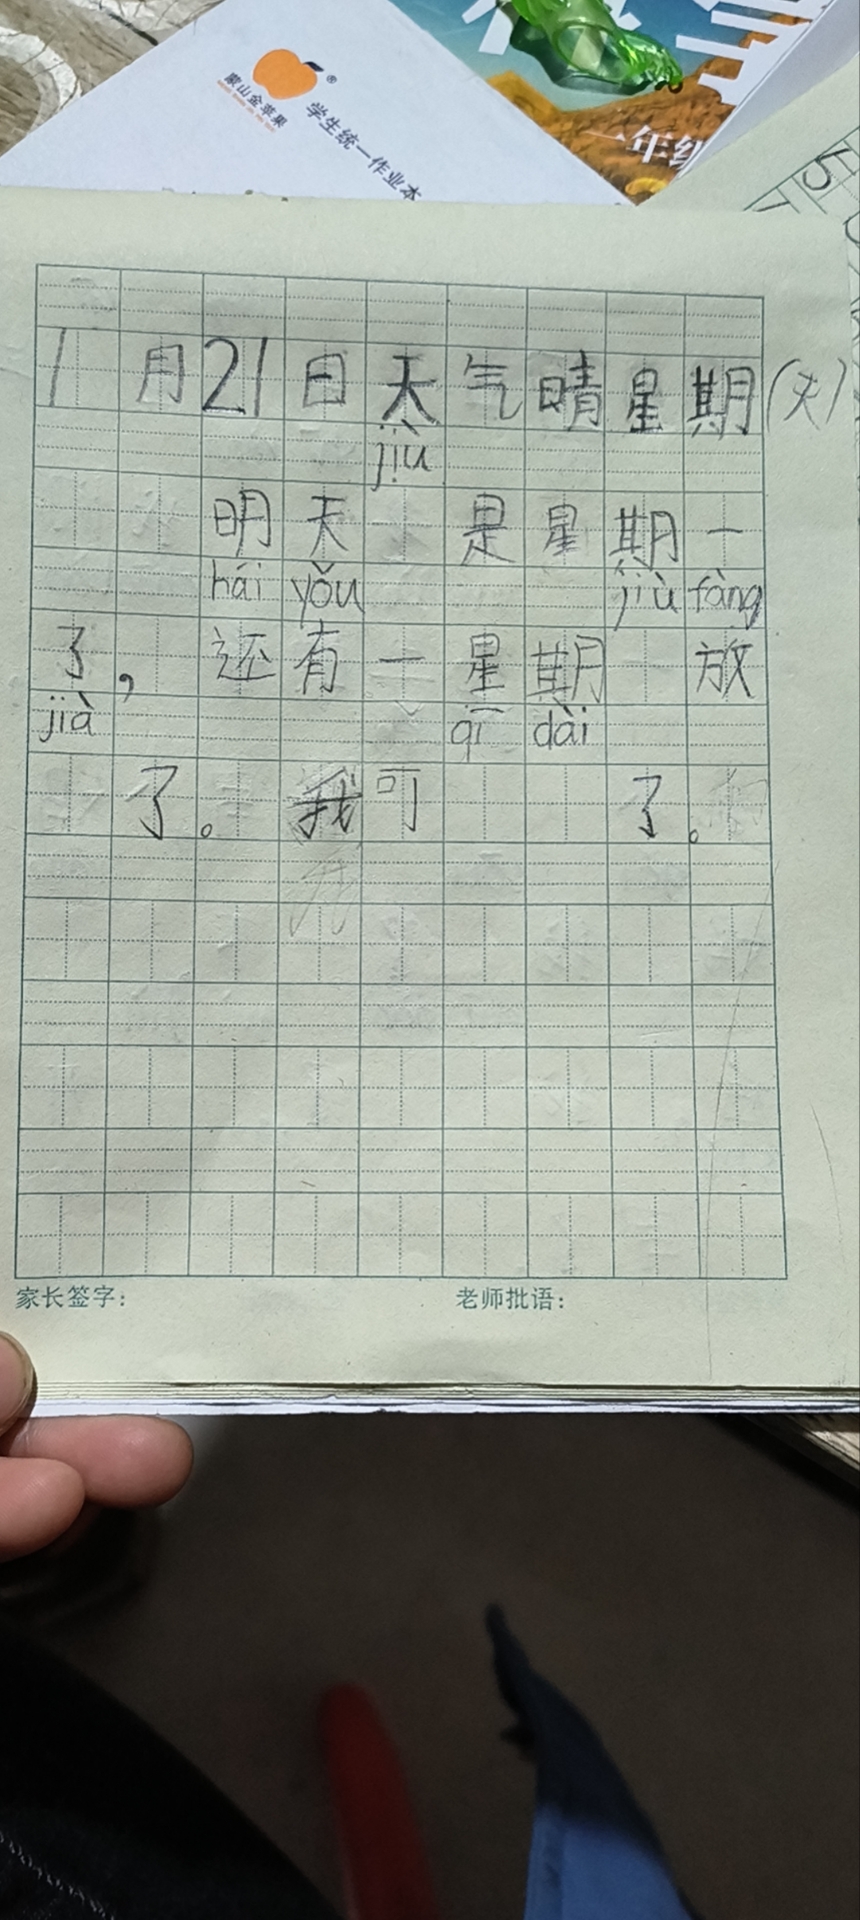 蒙山金苹果
®
学生统一作业本
一年级
5
1月21日天气晴星期(火)
jiù
明天 是星期一
hái yǒu jiù fàng
了, 还有一星期 放
jià qī dài
了。我可 了。
家长签字: 老师批语: